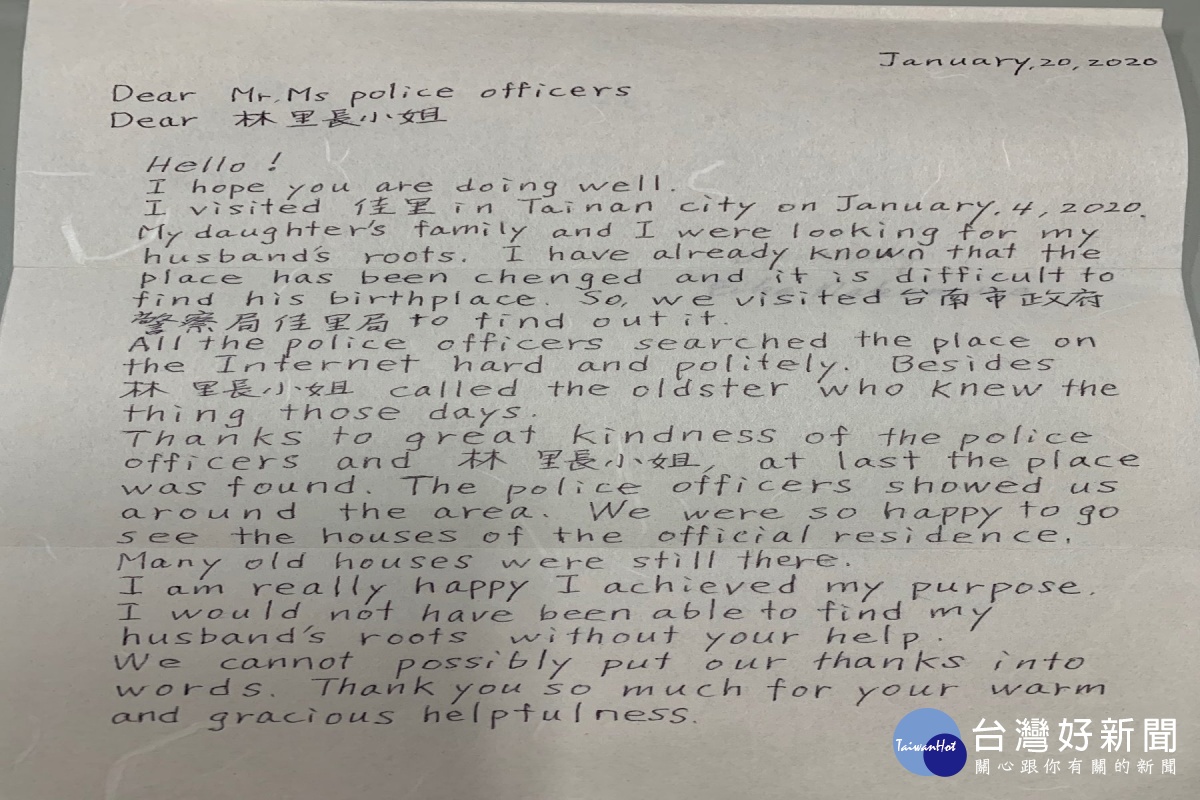 January, 20, 2020
Dear Mr, Ms police officers
Dear 林里長小姐
Hello!
I hope you are doing well.
I visited 佳里 in Tainan city on January, 4, 2020.
My daughter's family and I were looking for my
husband's roots. I have already known that the
place has been chenged and it is difficult to
find his birthplace. So, we visited 台南市政府
警察局佳里局 to find out it.
All the police officers searched the place on
the Internet hard and politely. Besides
林 里長小姐 called the oldster who knew the
thing those days.
Thanks to great kindness of the police
officers and 林 里長小姐, at last the place
was found. The police officers showed us
around the area. We were so happy to go
see the houses of the official residence.
Many old houses were still there.
I am really happy I achieved my purpose.
I would not have been able to find my
husband's roots without your help.
We cannot possibly put our thanks into
words. Thank you so much for your warm
and gracious helpfulness.
TaiwanHot 台灣好新聞
關心跟你有關的新聞